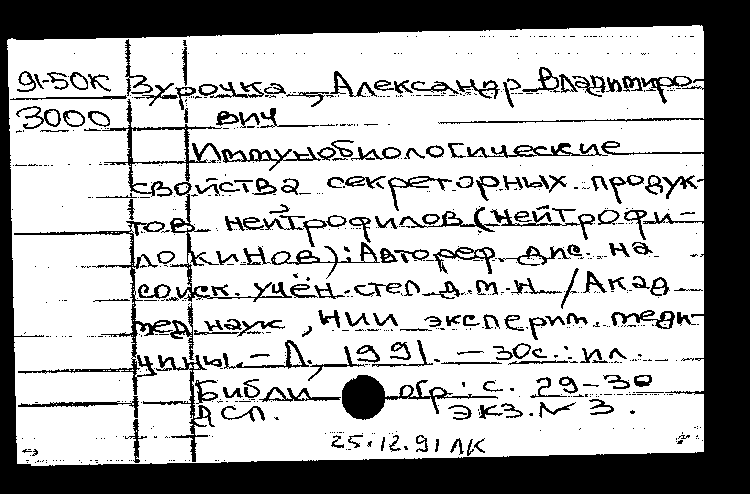 91-50К Зурочка, Александр Владимиро-
3000 вич
Иммунобиологические
свойства секреторных продук-
тов нейтрофилов (нейтрофи-
локинов): Автореф. дис. на
соиск. учён. степ. д.м.н. / Акад
мед. наук, НИИ эксперим. меди-
цины. - Л., 1991. - 30с.: ил.
Библиогр: с. 29-30
ДСП. экз. № 3.
25.12.91 ЛК